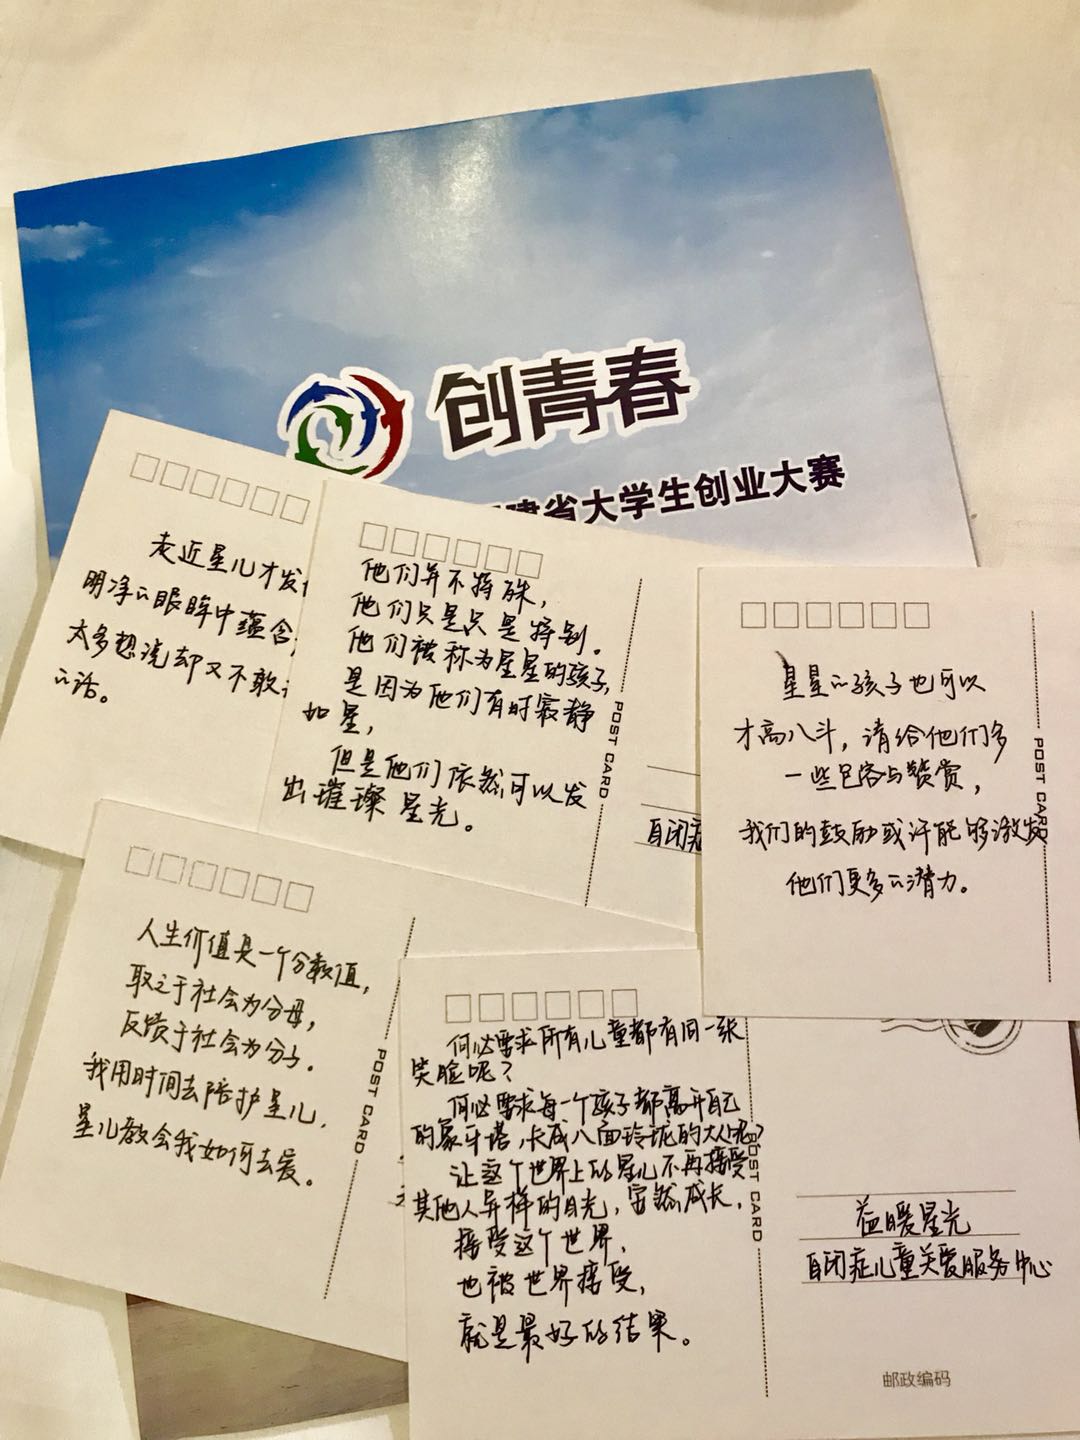 创青春
建省大学生创业大赛
走近星儿才发
明净的眼眸中蕴含
太多想说却又不敢
的话。
他们并不特殊，
他们只是只是特别。
他们被称为星星的孩子，
是因为他们有时寂静
如星，
但是他们依然可以发
出璀璨星光。
POST CARD
自闭症
星星的孩子也可以
才高八斗，请给他们多
一些包容与赞赏，
我们的鼓励或许能够激发
他们更多的潜力。
POST CARD
人生价值是一个分数值，
取之于社会为分母，
反馈于社会为分子。
我用时间去陪护星儿，
星儿教会我如何去爱。
POST CARD
何必要求所有儿童都有同一张
笑脸呢？
何必要求每一个孩子都离开自己
的象牙塔，长成八面玲珑的大人呢？
让这个世界上的星儿不再接受
其他人异样的目光，安然成长，
接受这个世界，
也被世界接受，
就是最好的结果。
POST CARD
益暖星光
自闭症儿童关爱服务中心
邮政编码